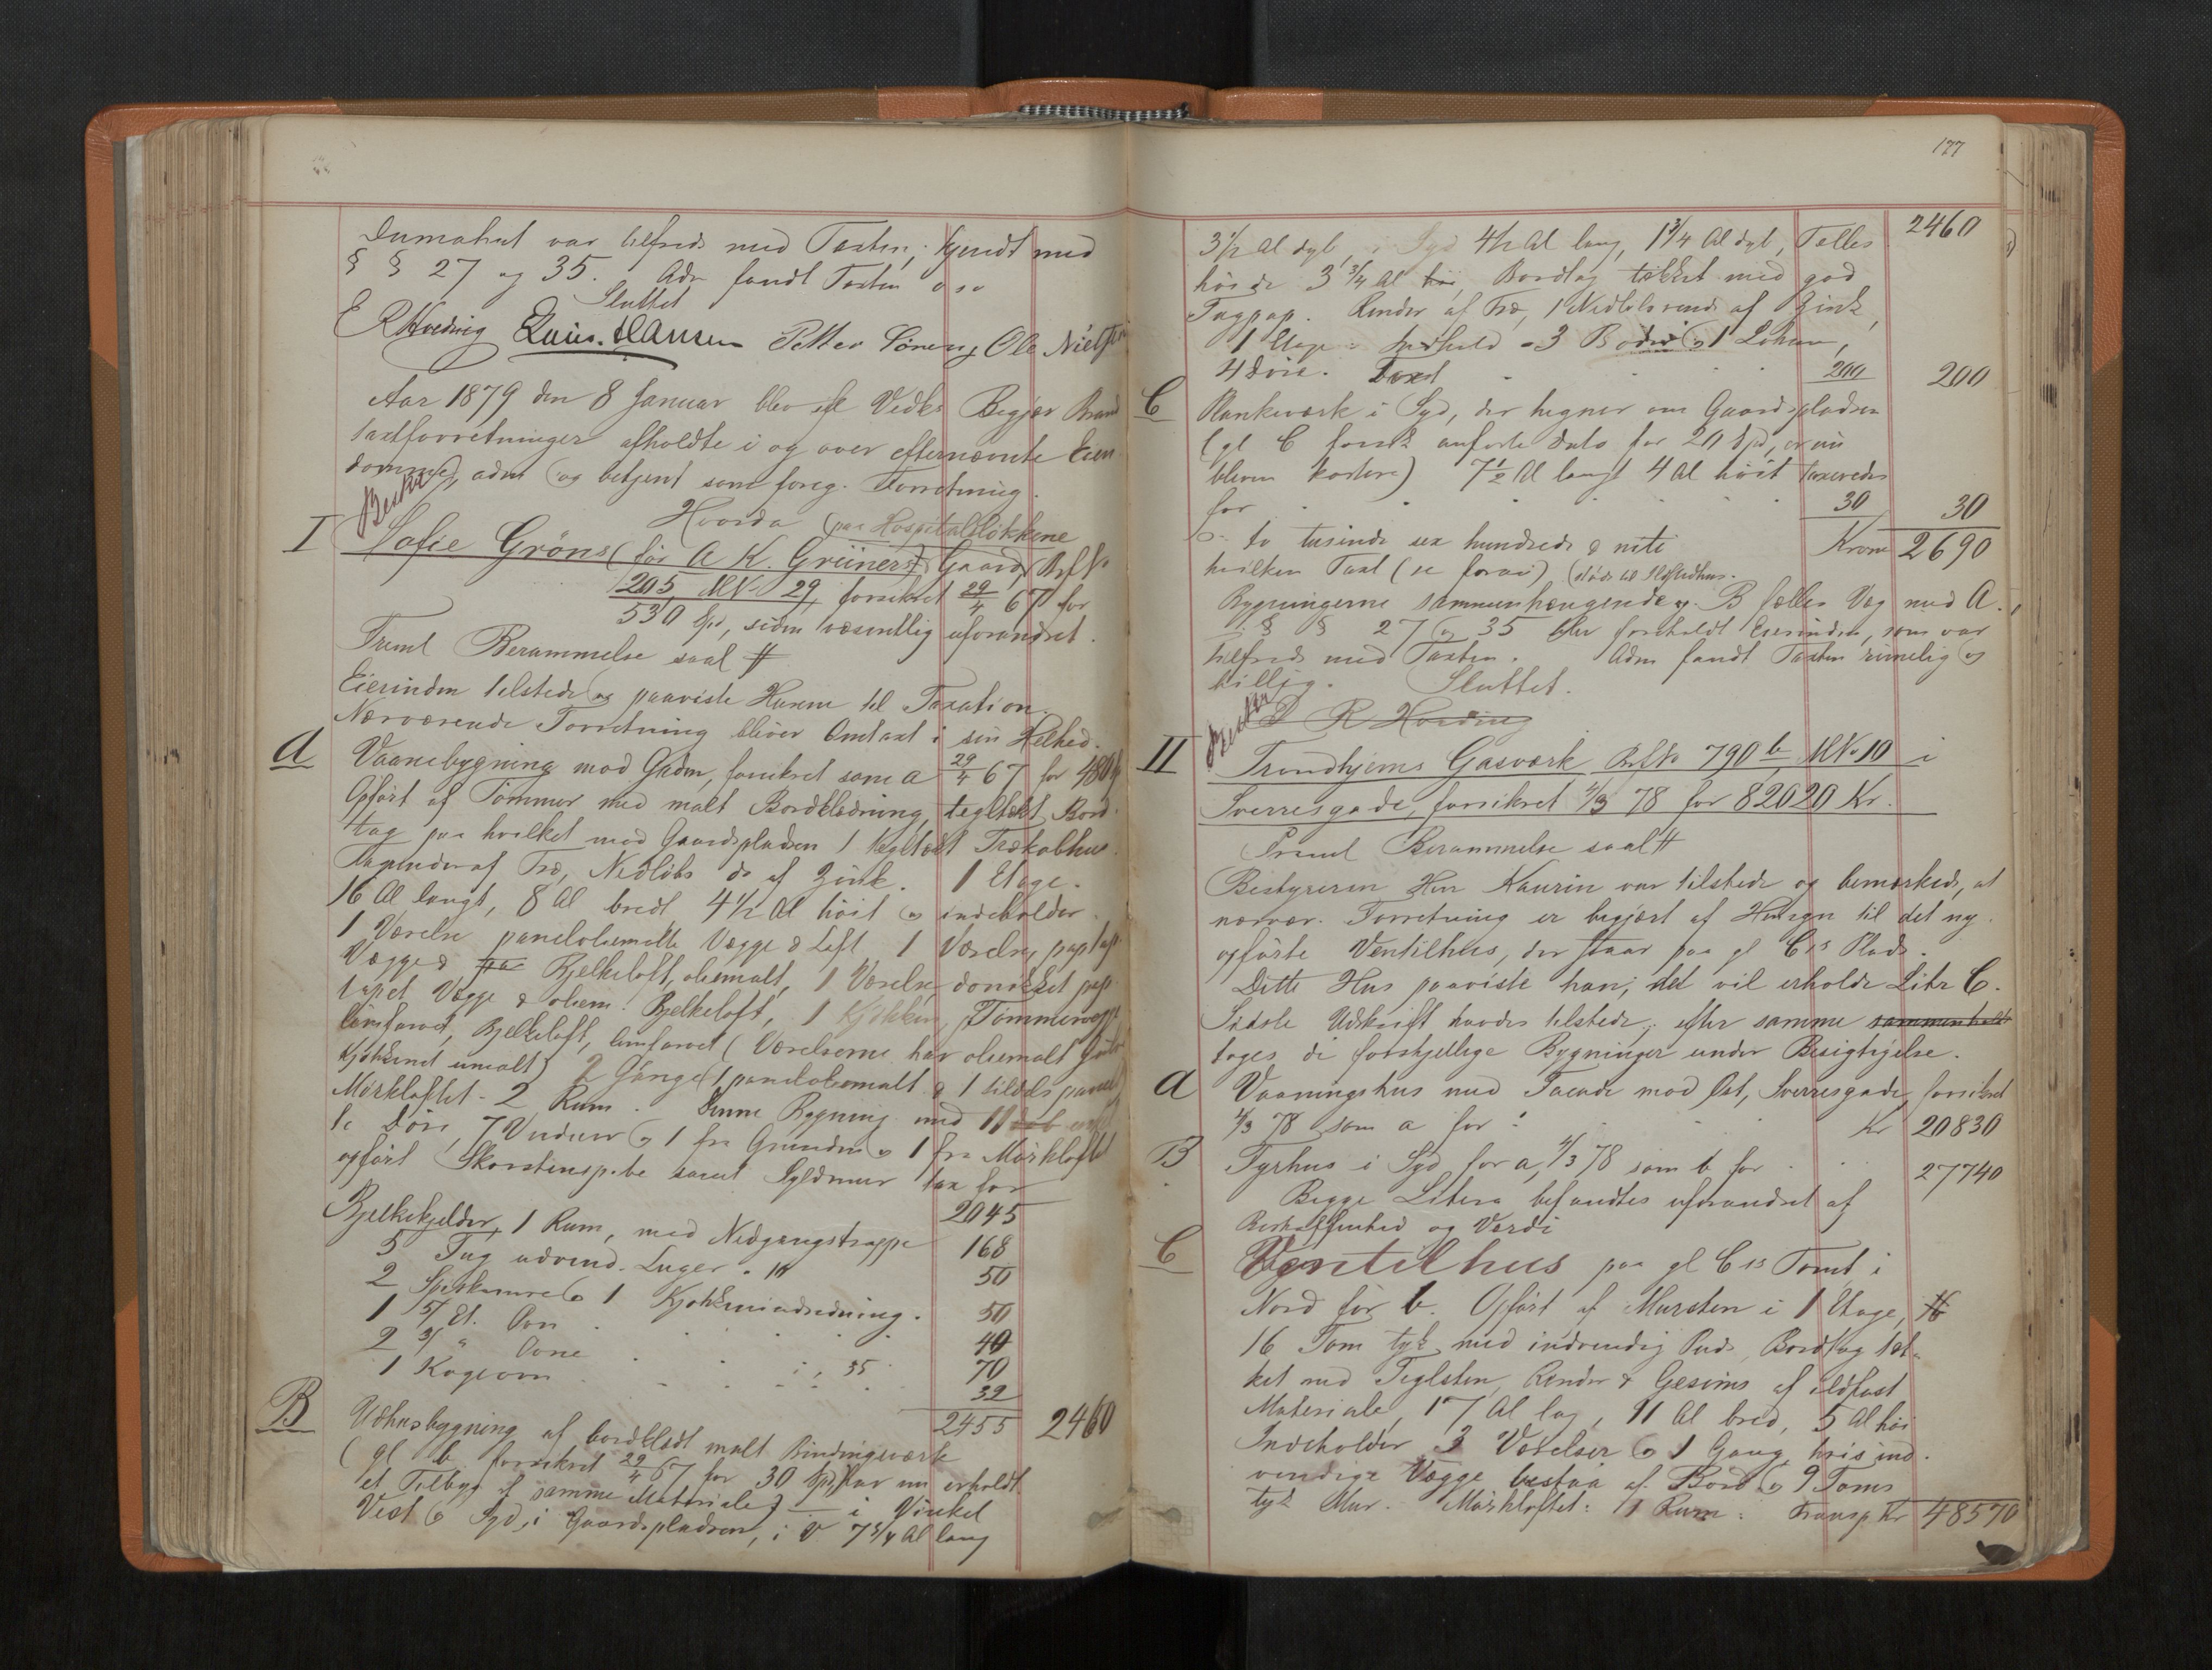 var tilfreds med Taxten, kjendt med
§ § 27 og 35. Adm fandt Taxten oso
Sluttet
E R Hveding Louis Hansen Petter Sørensen Ole Nielsen
Aar 1879 den 8 Januar blev eft Vedks Begjær Brand
taxtforretninger afholdte i og over efternævnte Eien
domme, adm og betjent som foreg. Forretning.
Hvorda
Besky
I Sofie Gröns (för A K. Grüners) Gaard, Bf No
paa Hospitalslökkene
205 MNo 29, forsikret 29/4 67 for
530 Spd, siden væsentlig uforandret.
Freml Berammelse saal #
Eierinden tilstede og paaviste Husene til Taxation.
Nærværende Forretning bliver Omtaxt i sin Helhed.
A Vaanebygning mod Gaden, forsikret som a 29/4 67 for 480
Opført af Tömmer med malt Bordklædning, tegltækt Bord
tag paa hvilket mod Gaardspladsen 1 tegltækt Trækobhus.
Tagrender af Træ, Nedløbs do af Zink. 1 Etage.
16 Al langt, 8 Al bredt, 4 1/2 Al höit og indeholder
1 Værelse paneloliemalte Vægge & Loft 1 Værelse, pap tap
Vægge & Bjelkeloft, oliemalt, 1 Værelse pap
tapet Vægge & oliem. Bjelkeloft, 1 Kjökken, Tömmervægge
limfarvet, Bjelkeloft, limfarvet (Værelserne har oliemalt Gulv
Kjökkenet umalt) 2 Gange (1 paneloliemalt & 1 tildels panelt)
Mørkloftet - 2 Rum. Denne Bygning med 11
te Döre, 7 Vinduer og 1 fra Grunden og 1 fra Mörkloftet
opfört Skorstenspibe samt Syldmur tax for
2045
Bjelkekjelder, 1 Rum, med Nedgangstrappe 168
5 Fag udvend. Luger 10 50
2 Spiskamre og 1 Kjökkenindredning. 50
1 5/ Et. Ovn 40
2 3/ " Ovne 35 70
1 Kogeovn 32
2455 2460
B Udhusbygning af bordklædt malt Bindingsværk
(gl b forsikret 29/4 67 for 30 Spd, har nu erholdt
et Tilbyg af samme Materiale) - i Vinkel
Vest og Syd, i Gaardspladsen, i V 7 3/4 Al lang
177
2460
3 1/2 Al dyb, i Syd 4 1/2 Al lang, 1 3/4 Al dyb, Fælles
höide 3 3/4 Al höi, Bordtag tækket med god
Tagpap. Render af Træ, 1 Nedløbsrende af Zink,
1 Etage - Indhold - 3 Boder og 1 Lokum,
4 Döre. Taxt 200 200
C Plankeværk i Syd, der hegner om Gaardspladsen
(gl C forsik anførte Dato for 20 Spd, er nu
bleven kortere) 7 1/2 Al langt 4 Al höit taxeredes
for 30 30
to tusinde sex hundrede & niti Kroner 2690
hvilken Taxt (se forøi)
Bygningerne sammenhængende og B fælles Væg med A.
§ § 27 og 35 blev foreholdt Eierinden, som var
tilfreds med Taxten. Adm fandt Taxten rimelig og
billig. Sluttet.
E R Hveding
Besky
II Trondhjems Gasværk Bf No 790 b, MNo 10 i
Sverresgade, forsikret 4/3 78 for 82020 Kr.
Freml Berammelse saal #
Bestyreren Herr Kaurin var tilstede og bemærkede, at
nærvær. Forretning er begjært af Hensyn til det ny
opförte Ventilhus, der staar paa gl C's Plads.
Dette Hus paaviste han; det vil erholde Litr C.
Sidste Udskrift havdes tilstede; efter samme sammenholdt
toges de forskjellige Bygninger under Besigtigelse.
A Vaaningshus med Facade mod Öst, Sverresgade, forsikret
4/3 78 som a for Kr 20830
B Fyrhus i Syd for a, 4/3 78 som b for 27740
Begge Litera befandtes uforandret af
Beskaffenhed og Værdi
C Ventilhus paa gl C's Tomt i
Nord för b. Opfört af Mursten i 1 Etage,
16 Tom tyk med indvendig Puds, Bordtag tæk-
ket med Teglsten, Render & Gesims af ildfast
Materiale, 17 Al lag, 11 Al bred, 5 Al höi
Indeholder 3 Værelser og 1 Gang hvis ind-
vendige Vægge bestaa af Bord og 9 Toms
tyk Mur. Mörkloftet: 1 Rum: Transp. Kr 48570